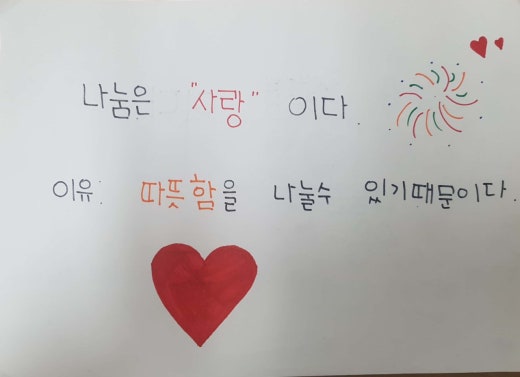 나눔은 "사랑" 이다.
이유: 따뜻함을 나눌수 있기때문이다.